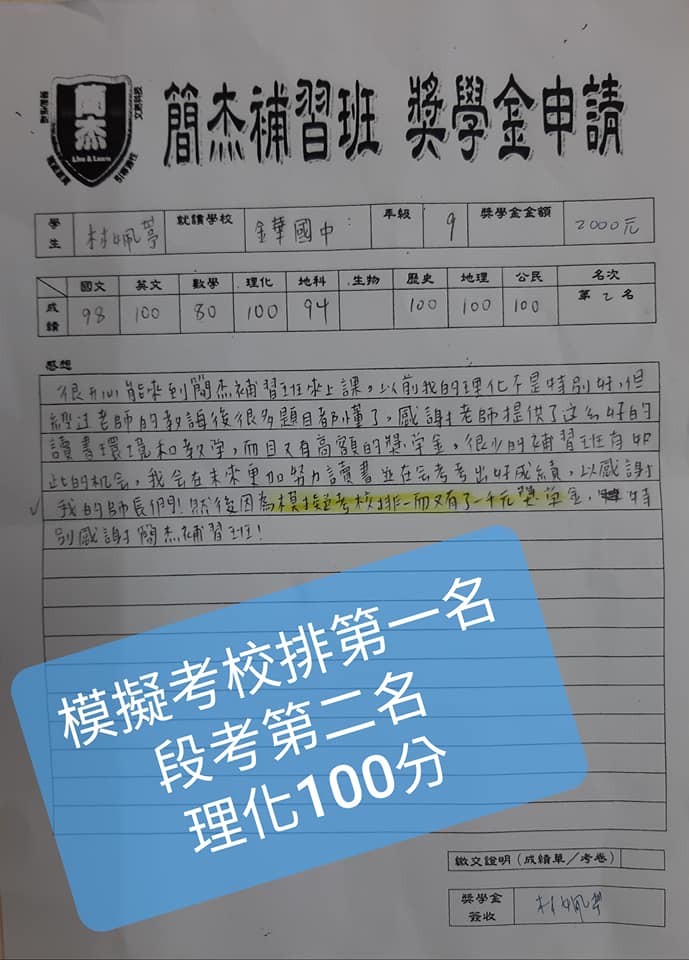 簡杰
Live & Learn
簡杰補習班 獎學金申請
學生 林姵葶 就讀學校 金華國中 年級 9 獎學金金額 2000元
國文 英文 數學 理化 地科 生物 歷史 地理 公民 名次
成績 98 100 80 100 94 100 100 100 第 2 名
感想
很開心能來到簡杰補習班來上課，以前我的理化不是特別好，但
經过老師的教誨後很多題目都懂了，感謝老師提供了这么好的
讀書環境和教学，而且又有高額的獎学金，很少的補習班有如
此的机会，我会在未來更加努力讀書並在会考考出好成績，以感謝
我的師長們！然後因為模擬考校排一而又有了一千元獎学金，特
別感謝簡杰補習班！
模擬考校排第一名
段考第二名
理化100分
繳交證明（成績單／考卷）
獎學金簽收 林姵葶